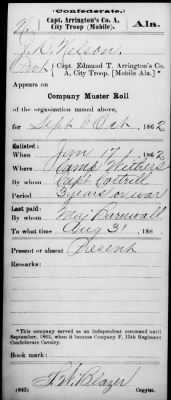 (Confederate.)
Capt. Arrington's Co. A,
City Troop (Mobile). Ala.
J. D. Nelson
Capt. Edmund T. Arrington's Co.
A, City Troop. [Mobile Ala.]*
Appears on
Company Muster Roll
of the organization named above,
for Sept & Oct, 1862
Enlisted:
When Jan 17, 1862
Where Camp Withers
By whom Capt Cottrill
Period 3 years or war
Last paid:
By whom Maj Barnwall
To what time Aug 31, 186
Present or absent Present
Remarks:
*This company served as an independent command until
September, 1863, when it became Company F, 15th Regiment
Confederate Cavalry.
Book mark:
Blazer
(642) Copyist.